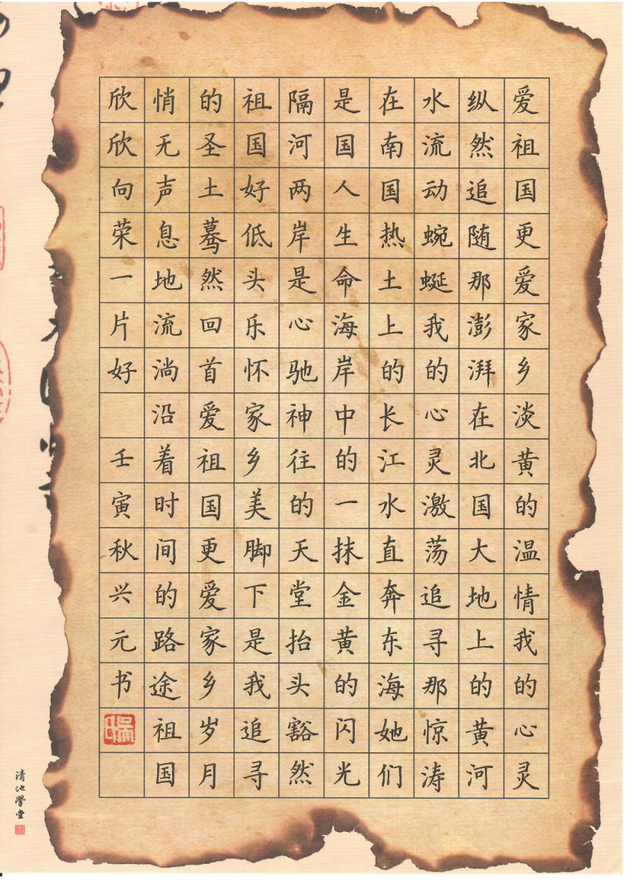 爱祖国更爱家乡淡黄的温情我的心灵
纵然追随那澎湃在北国大地上的黄河
水流动蜿蜒我的心灵激荡追寻那惊涛
在南国热土上的长江水直奔东海她们
是国人生命海岸中的一抹金黄的闪光
隔河两岸是心驰神往的天堂抬头豁然
祖国好低头乐怀家乡美脚下是我追寻
的圣土蓦然回首爱祖国更爱家乡岁月
悄无声息地流淌沿着时间的路途祖国
欣欣向荣一片好 壬寅秋兴元书
清池学堂